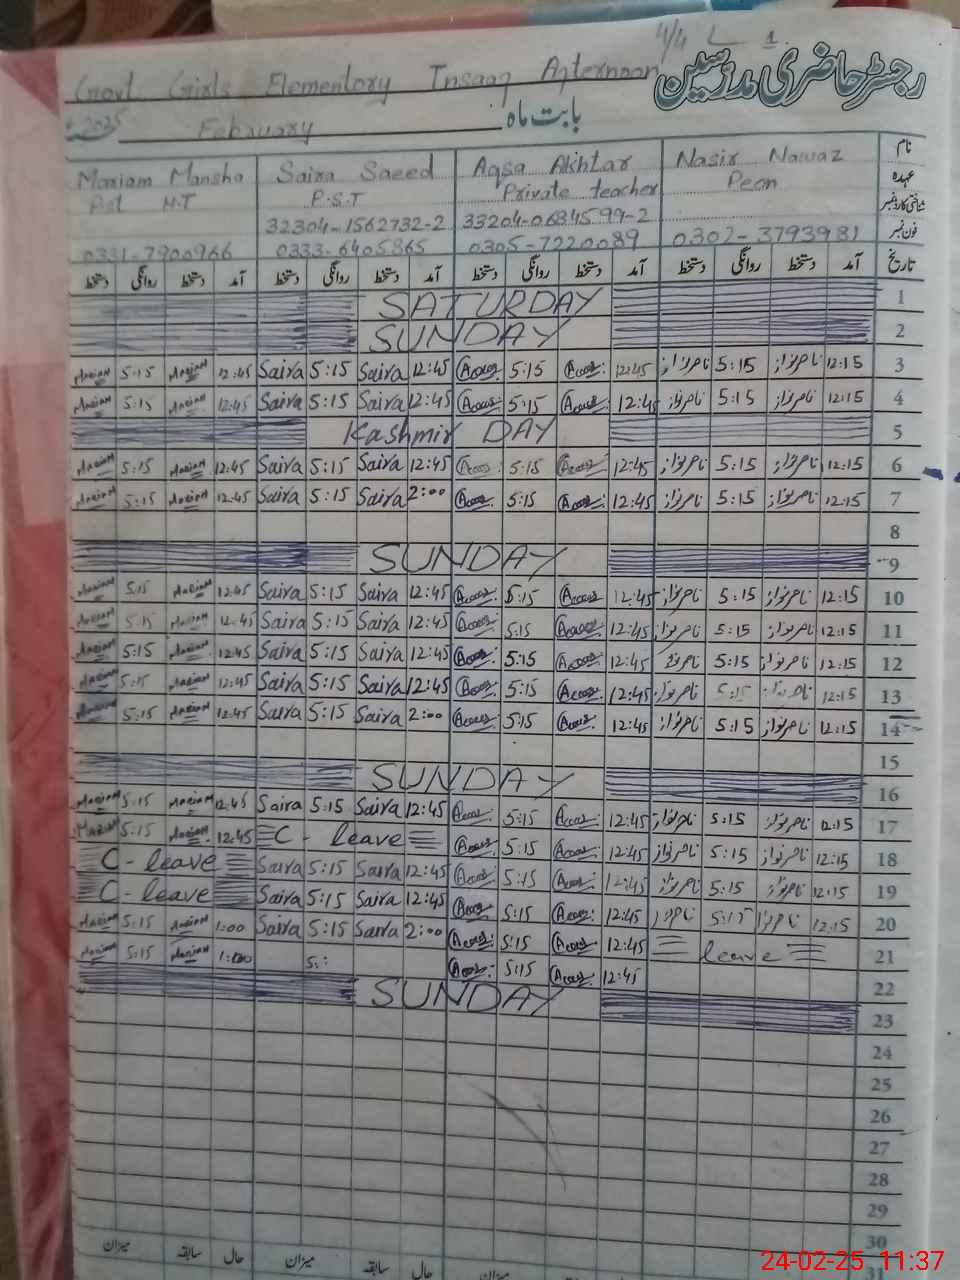 4/4 L 1
Govt Girls Elementory Insaaq Afternoon رجسٹر حاضری مدرسین
2025 February بابت ماہ
Mariam Mansha Saira Saeed Aqsa Akhtar Nasir Nawaz نام
Pst H.T P.S.T Private teacher Peon عہدہ
32304-1562732-2 33204-0634599-2 شناختی کارڈ نمبر
0331-7900966 0333-6405865 0305-7220089 0302-3793981 فون نمبر
دستخط روانگی دستخط آمد دستخط روانگی دستخط آمد دستخط روانگی دستخط آمد دستخط روانگی دستخط آمد تاریخ
SATURDAY 1
SUNDAY 2
Mariam 5:15 Mariam 12:45 Saira 5:15 Saira 12:45 5:15 12:45 ناصر نواز 5:15 ناصر نواز 12:15 3
Mariam 5:15 Mariam 12:45 Saira 5:15 Saira 12:45 5:15 12:45 ناصر نواز 5:15 ناصر نواز 12:15 4
Kashmir DAY 5
Mariam 5:15 Mariam 12:45 Saira 5:15 Saira 12:45 5:15 12:45 ناصر نواز 5:15 ناصر نواز 12:15 6
Mariam 5:15 Mariam 12:45 Saira 5:15 Saira 2:00 5:15 12:45 ناصر نواز 5:15 ناصر نواز 12:15 7
8
SUNDAY 9
Mariam 5:15 Mariam 12:45 Saira 5:15 Saira 12:45 5:15 12:45 ناصر نواز 5:15 ناصر نواز 12:15 10
Mariam 5:15 Mariam 12:45 Saira 5:15 Saira 12:45 5:15 12:45 ناصر نواز 5:15 ناصر نواز 12:15 11
Mariam 5:15 Mariam 12:45 Saira 5:15 Saira 12:45 5:15 12:45 ناصر نواز 5:15 ناصر نواز 12:15 12
Mariam 5:15 Mariam 12:45 Saira 5:15 Saira 12:45 5:15 12:45 ناصر نواز 5:15 ناصر نواز 12:15 13
Mariam 5:15 Mariam 12:45 Saira 5:15 Saira 2:00 5:15 12:45 ناصر نواز 5:15 ناصر نواز 12:15 14
15
SUNDAY 16
Mariam 5:15 Mariam 12:45 Saira 5:15 Saira 12:45 5:15 12:45 ناصر نواز 5:15 ناصر نواز 12:15 17
Mariam 5:15 Mariam 12:45 C - leave 5:15 12:45 ناصر نواز 5:15 ناصر نواز 12:15 18
C - leave Saira 5:15 Saira 12:45 5:15 12:45 ناصر نواز 5:15 ناصر نواز 12:15 19
C - leave Saira 5:15 Saira 12:45 5:15 12:45 ناصر نواز 5:15 ناصر نواز 12:15 20
Mariam 5:15 Mariam 1:00 Saira 5:15 Saira 2:00 5:15 12:45 leave 21
Mariam 5:15 Mariam 1:00 5: 5:15 12:45 22
SUNDAY 23
24
25
26
27
28
29
30
31
میزان سابقہ حال میزان سابقہ حال میزان
24-02-25 11:37